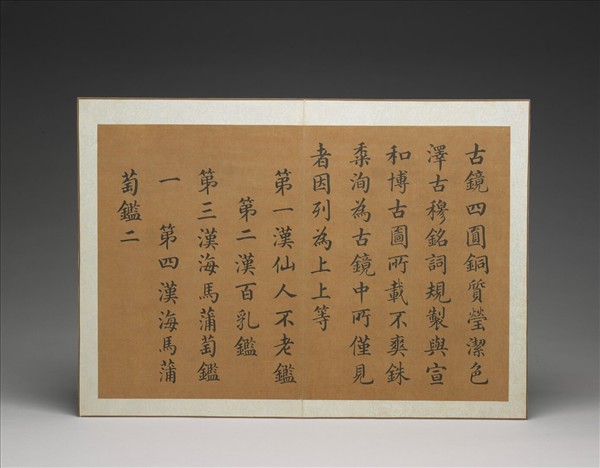 古鏡四圓銅質瑩潔色
澤古穆銘詞規製與宣
和博古圖所載不爽銖
桼洵為古鏡中所僅見
者因列為上上等
第一漢仙人不老鑑
第二漢百乳鑑
第三漢海馬蒲萄鑑
一 第四漢海馬蒲
萄鑑二